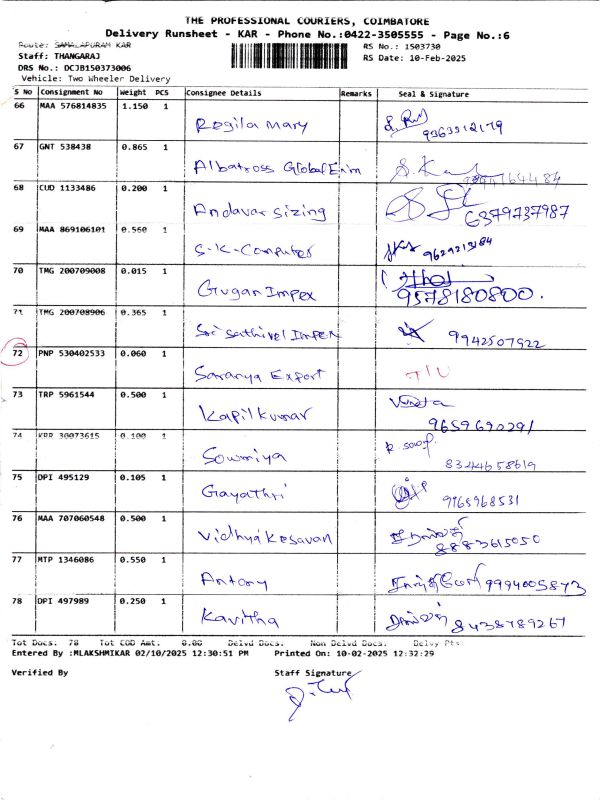 THE PROFESSIONAL COURIERS, COIMBATORE
Delivery Runsheet - KAR - Phone No.:0422-3505555 - Page No.:6
Route: SAMALAPURAM KAR RS No.: 1503730
Staff: THANGARAJ RS Date: 10-Feb-2025
DRS No.: DCJB150373006
Vehicle: Two Wheeler Delivery
S No Consignment No Weight PCS Consignee Details Remarks Seal & Signature
66 MAA 576814835 1.150 1 Regila Mary
67 GNT 538438 0.865 1 Albatross Global Exim
68 CUD 1133486 0.200 1 Andavar sizing 6379737987
69 MAA 869106101 0.560 1 S-K-Computer 9629213184
70 TMG 200709008 0.015 1 Gugan Impex 9578180800.
71 TMG 200708906 0.365 1 Sri Sathivel Impex 9942507922
72 PNP 530402533 0.060 1 Saranya Export
73 TRP 5961544 0.500 1 Kapil kumar 9659690291
74 KRR 30073615 0.100 1 Sowmiya 8344658619
75 DPI 495129 0.105 1 Gayathri 9965968531
76 MAA 707060548 0.500 1 Vidhya Kesavan 8883615050
77 MTP 1346086 0.550 1 Antony 9994005873
78 DPI 497989 0.250 1 Kavitha 8438789267
Tot Docs: 78 Tot COD Amt. 0.00 Delvd Docs. Non Delvd Docs. Delvy Pt:
Entered By :MLAKSHMIKAR 02/10/2025 12:30:51 PM Printed On: 10-02-2025 12:32:29
Verified By Staff Signature